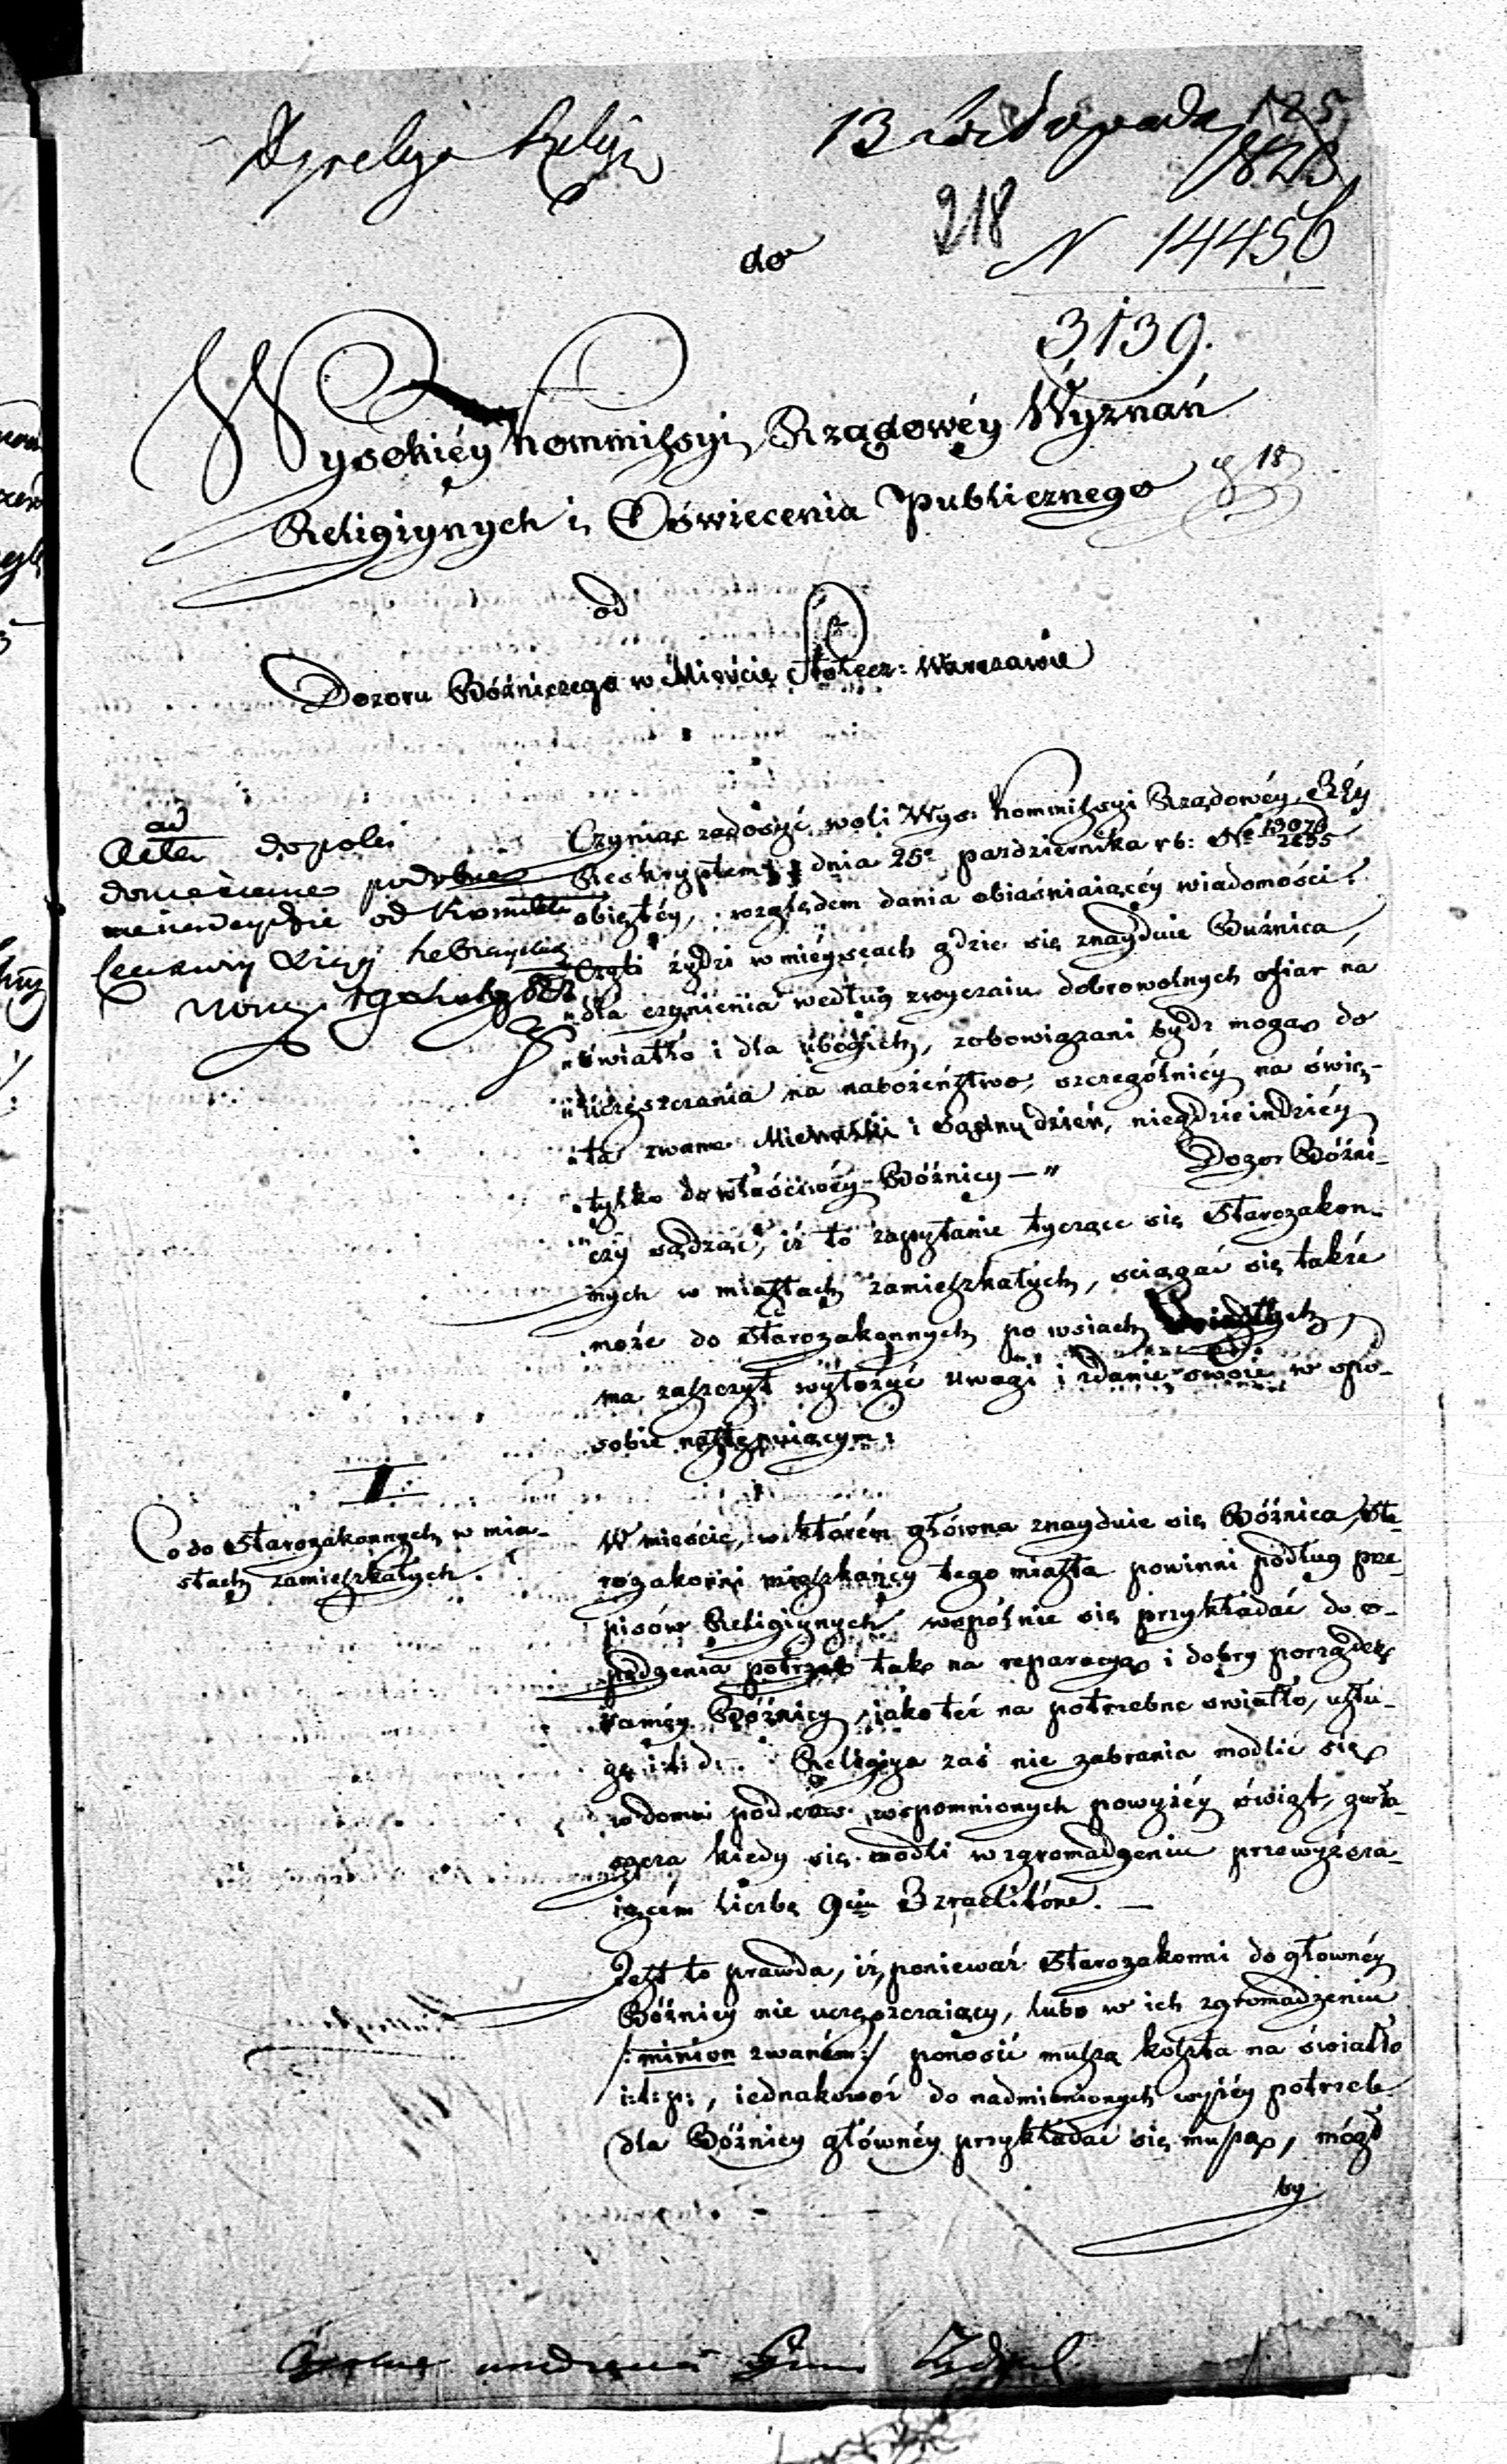 Dyrekcya Religij
13 Listopada 1825
218
N 14456
3139.
do
Wysokiéy Kommissyi Rządowéy Wyznań
Religiynych i Oświecenia Publicznego
18
od
Dozoru Bóźniczego w Mieście Stołecz: Warszawie
ad
Acta dopoki
podobne
nie nadeydzie od Komitetu
Cenzury Xiąg hebrayskich
Czyniąc zadosyć woli Wys: Kommissyi Rządowéy
Reskryptem z dnia 25º pazdziernika rb: Nº 13076/2655
obiętéy, względem dania obiaśniaiącéy wiadomości:
"Czyli żydzi w mieyscach gdzie się znayduie Bużnica,
"dla czynienia według zwyczaiu dobrowolnych ofiar na
"światło i dla ubogich, zobowiązani bydź mogą do
"uczęszczania na nabożeństwo, szczególniéy na świę-
"ta zwane i Sądny dzień, niegdzieindziéy
"tylko do właściwéy Bóżnicy —" Dozor Bóżni-
czy sądząc, iż to zapytanie tyczące się Starozakon-
nych w miastach zamieszkałych, sciągać się także
może do Starozakonnych po wsiach osiadłych,
ma zaszczyt wyłożyć uwagi i zdanie swoie w spo-
sobie następuiącym:
I
Co do Starozakonnych w mia-
stach zamieszkałych.
W mieście, w którém główna znayduie się Bóżnica, Sta-
rozakonni mieszkańcy tego miasta powinni podług prze-
pisów Religiynych wspólnie się przykładać do o-
pędzenia potrzeb tak na reparacyą i dobry porządek
saméy Bóżnicy, iako też na potrzebne swiatło, usłu-
gę i:t:d:. Religiya zaś nie zabrania modlić się
w domu podczas wspomnionych powyżéy świąt, zwła-
szcza kiedy się modli w zgromadzeniu przewyższa-
iącém liczbę 9ciu Izraelitów. —
Jest to prawda, iż, ponieważ Starozakonni do główney
Bóżnicy nie uczęszczaiący, lubo w ich zgromadzeniu
/: minion zwaném :/ ponosić muszą koszta na światło
i:t:p:, iednakowoż do nadmienionych wyżéy potrzeb
dla Bóżnicy główney przykładać się muszą, mógł
by